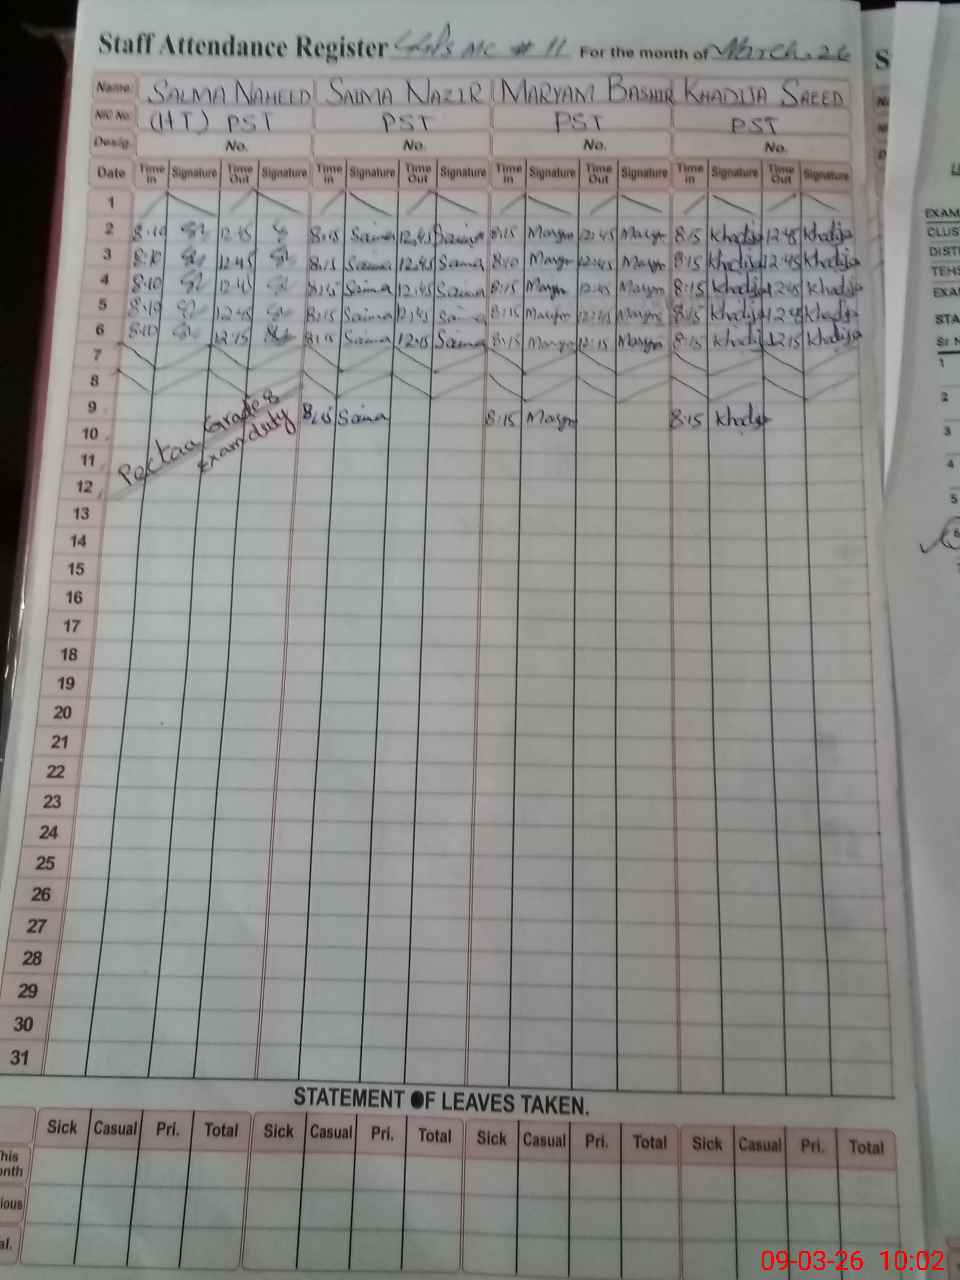 Staff Attendance Register MC # 11 For the month of March.26
Name: SALMA NAHEED SAIMA NAZIR MARYAM BASHIR KHADIJA SAEED
NIC No (HT) PST PST PST PST
Desig. No. No. No. No.
Date Time in Signature Time Out Signature Time in Signature Time Out Signature Time in Signature Time Out Signature Time in Signature Time Out Signature
1
2 8:10 12:45 8:15 Saima 12:45 Saima 8:15 Marym 12:45 Marym 8:15 Khadija 12:45 Khadija
3 8:10 12:45 8:15 Saima 12:45 Saima 8:10 Marym 12:45 Marym 8:15 Khadija 12:45 Khadija
4 8:10 12:45 8:15 Saima 12:45 Saima 8:15 Marym 12:45 Marym 8:15 Khadija 12:45 Khadija
5 8:10 12:45 8:15 Saima 12:45 Saima 8:15 Marym 12:45 Marym 8:15 Khadija 12:45 Khadija
6 8:10 12:15 8:15 Saima 12:15 Saima 8:15 Marym 12:15 Marym 8:15 Khadija 12:15 Khadija
7
8
9 8:15 Saima 8:15 Marym 8:15 Khadija
Pectaa Grade 8
Exam duty
10
11
12
13
14
15
16
17
18
19
20
21
22
23
24
25
26
27
28
29
30
31
STATEMENT OF LEAVES TAKEN.
Sick Casual Pri. Total Sick Casual Pri. Total Sick Casual Pri. Total Sick Casual Pri. Total
This
onth
ious
al.
EXAM
CLUS
DIST
TEHS
EXAM
STA
Sr N
1
2
3
4
5
6
09-03-26 10:02